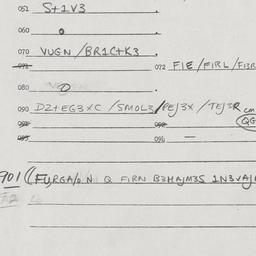 051 S+1V3
060 0
070 VUGN/BR1C+K3
071
072 FIE/FIRL/FI3R
080 0
090 DZ+EG3XC/SMOL3/PEJ3X/TEJ3R cm
QG
096 —
901 ((FURGA/0N Q FiRN B3HAJM3S 1N3VAJ